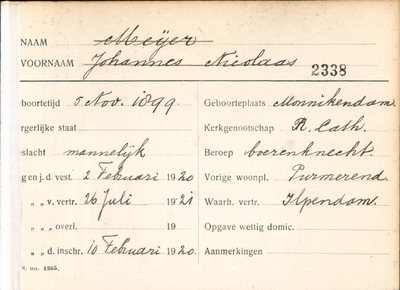 NAAM Meijer
VOORNAAM Johannes Nicolaas 2338
boortetijd 5 Nov. 1899 Geboorteplaats Monnikendam.
rgerlijke staat Kerkgenootschap R. Cath.
slacht mannelijk Beroep boerenknecht.
g en j.d. vest. 2 Februari 1920 Vorige woonpl. Purmerend.
„ „ v. vertr. 26 Juli 1921 Waarh. vertr. Ilpendam.
„ „ „ overl. 19 Opgave wettig domic.
„ „ d. inschr. 10 Februari 1920. Aanmerkingen
S. no. 1365.